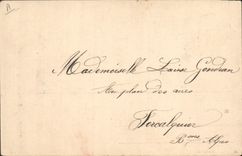 Mademoiselle Louise Gondran
Au plan des aires
Forcalquier
Bses Alpes